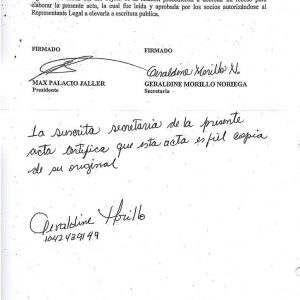 elaborar la presente acta, la cual fue leída y aprobada por los socios autorizándose al
Representante Legal a elevarla a escritura publica.
FIRMADO
FIRMADO
Geraldine Morillo N.
MAX PALACIO JALLER
Presidente
GERALDINE MORILLO NORIEGA
Secretaria
La suscrita secretaria de la presente
acta certifica que esta acta es fiel copia
de su original
Geraldine Morillo
1042434149